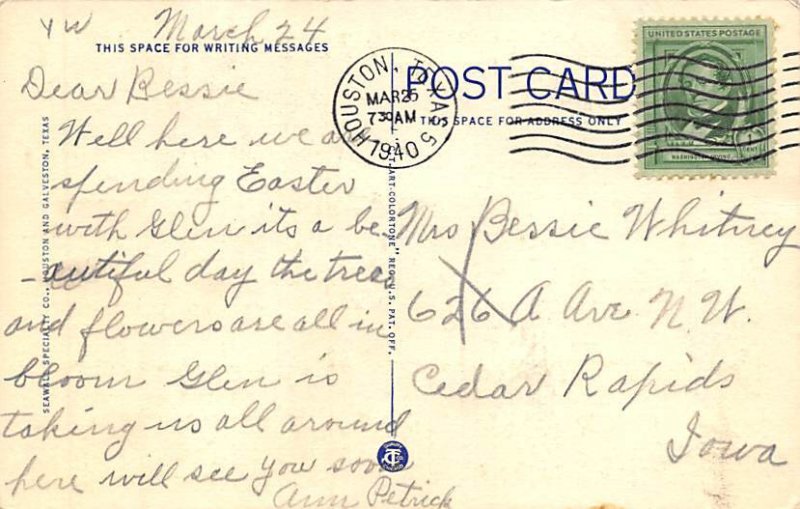 YW March 24
THIS SPACE FOR WRITING MESSAGES
Dear Bessie
Well here we a
spending Easter
with Glen its a be
-autiful day the trees
and flowers are all in
bloom Glen is
taking us all around
here will see you soon
Ann Petrick
SEAWALL SPECIALTY CO., HOUSTON AND GALVESTON, TEXAS
ART-COLORTONE" REG. U.S. PAT. OFF.
POST CARD
THIS SPACE FOR ADDRESS ONLY
HOUSTON, TEXAS 5
MAR 25
7 30 AM
1940
UNITED STATES POSTAGE
Mrs Bessie Whitney
626 A Ave N.W.
Cedar Rapids
Iowa